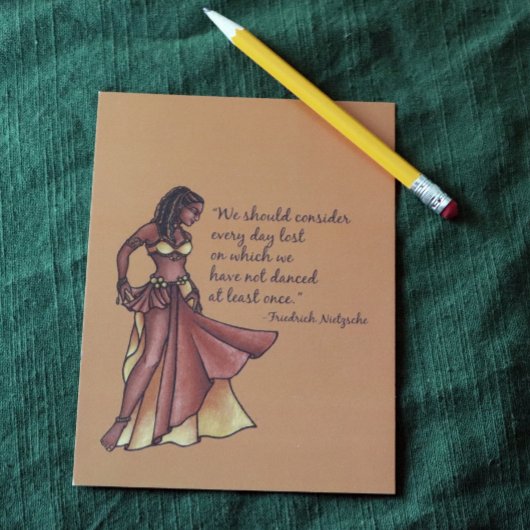 "We should consider
every day lost
on which we
have not danced
at least once."
-Friedrich Nietzsche